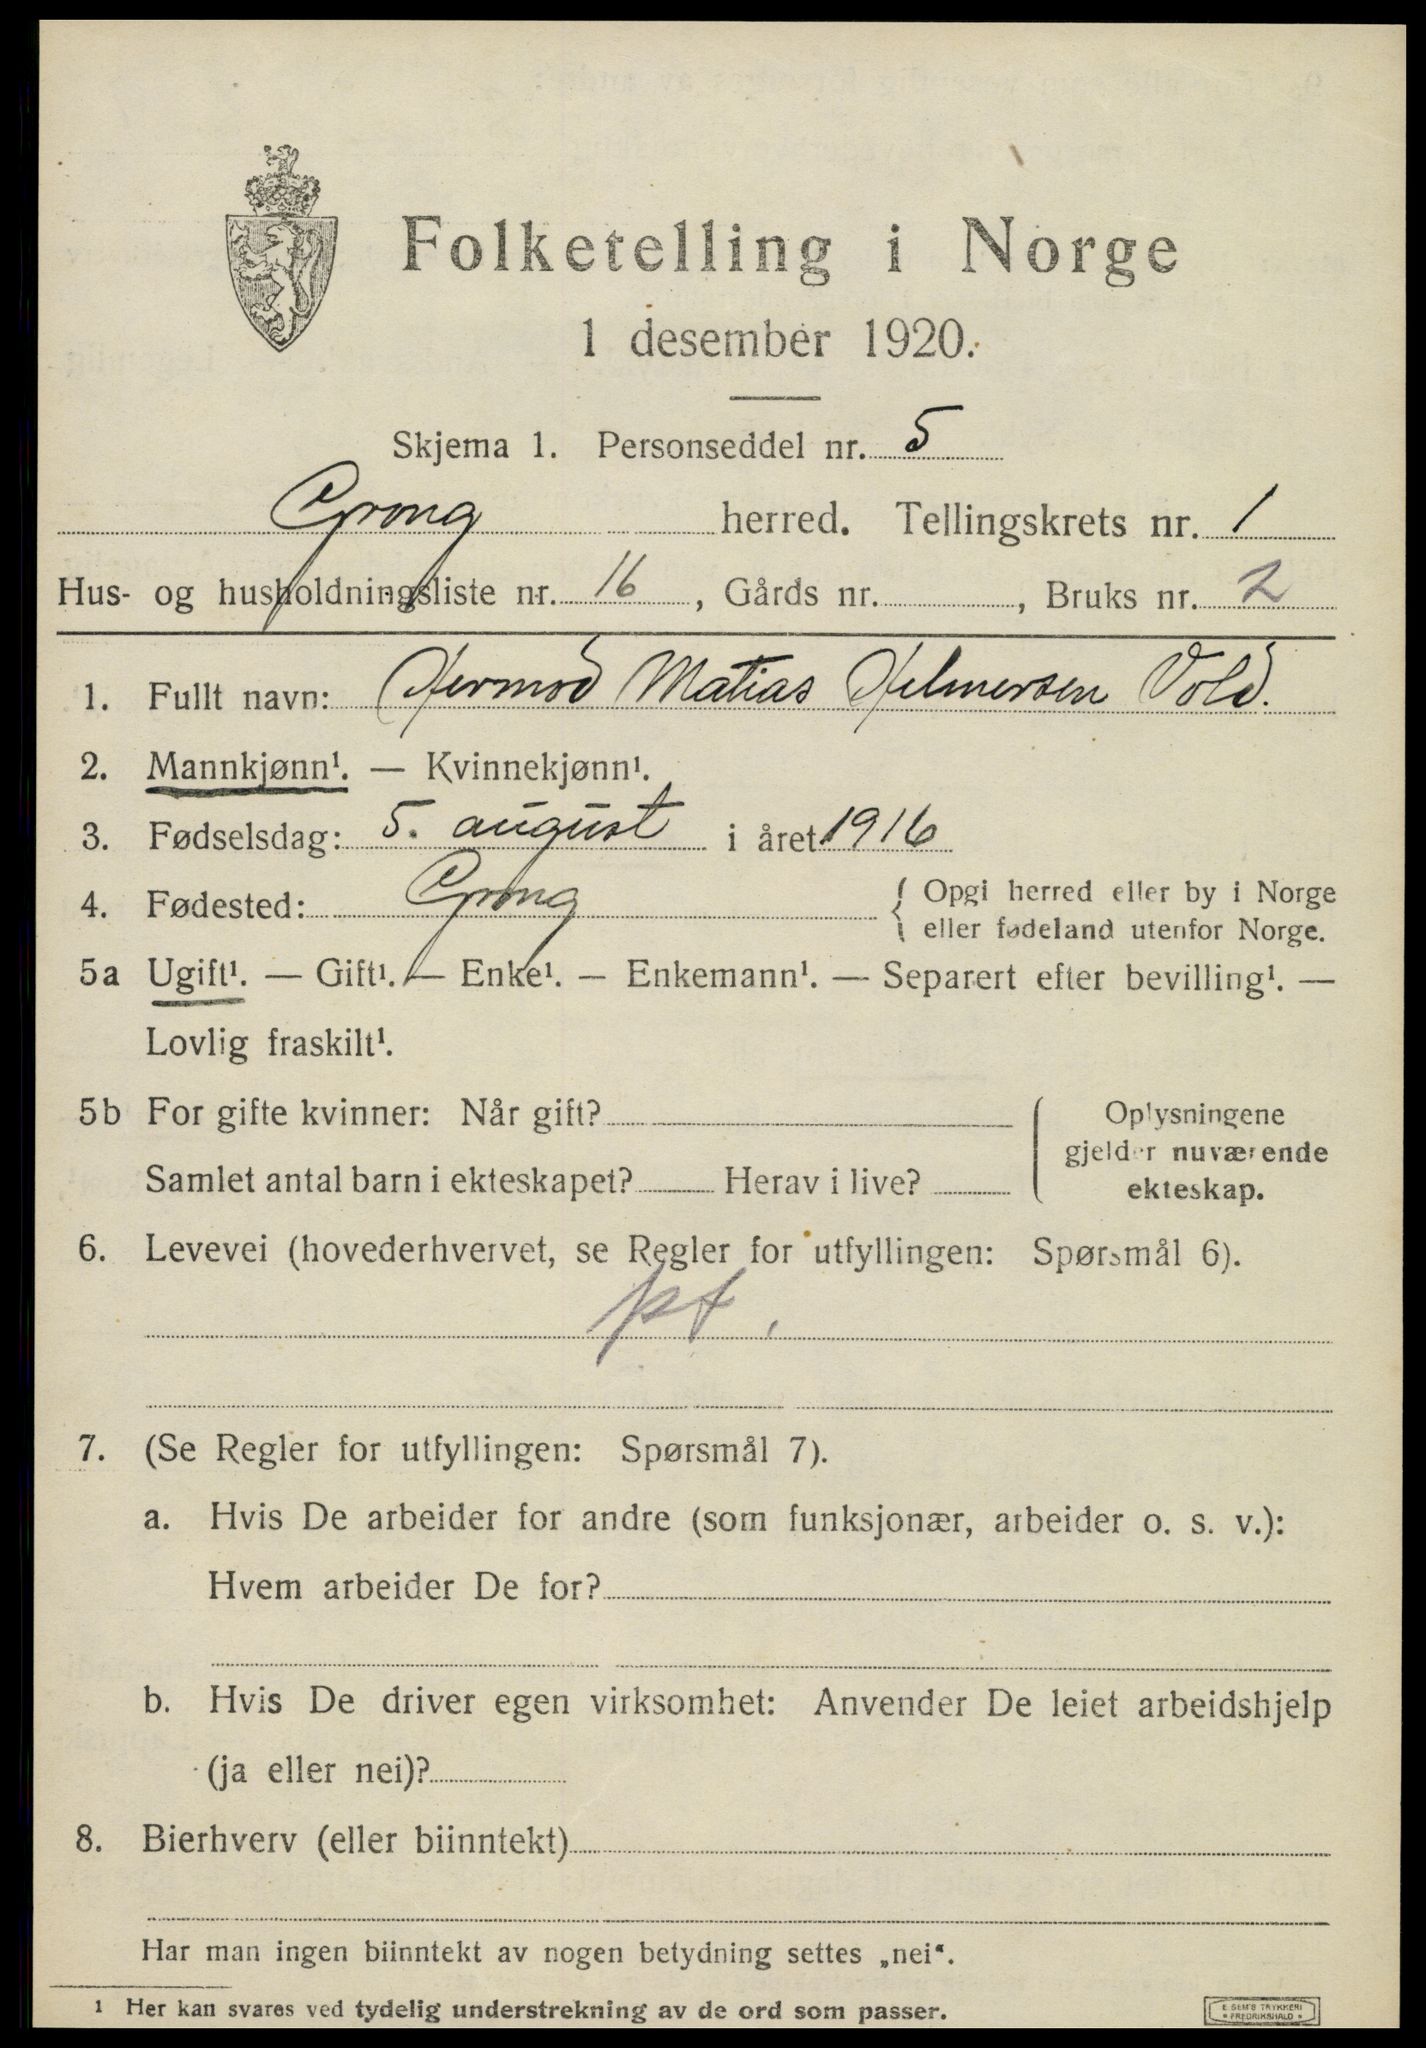 Folketelling i Norge
1 desember 1920.
Skjema 1. Personseddel nr. 5
Grong herred. Tellingskrets nr. 1
Hus- og husholdningsliste nr. 16, Gårds nr. , Bruks nr. 2
1. Fullt navn: Hermod Matias Helmersen Vold.
2. Mannkjønn¹. — Kvinnekjønn¹.
3. Fødselsdag: 5. august i året 1916
4. Fødested: Grong { Opgi herred eller by i Norge
eller fødeland utenfor Norge.
5a Ugift¹. — Gift¹. — Enke¹. — Enkemann¹. — Separert efter bevilling¹. —
Lovlig fraskilt¹.
5b For gifte kvinner: Når gift?
Samlet antal barn i ekteskapet? Herav i live?
Oplysningene
gjelder nuværende
ekteskap.
6. Levevei (hovederhvervet, se Regler for utfyllingen: Spørsmål 6).
pt.
7. (Se Regler for utfyllingen: Spørsmål 7).
a. Hvis De arbeider for andre (som funksjonær, arbeider o. s. v.):
Hvem arbeider De for?
b. Hvis De driver egen virksomhet: Anvender De leiet arbeidshjelp
(ja eller nei)?
8. Bierhverv (eller biinntekt)
Har man ingen biinntekt av nogen betydning settes „nei“.
1 Her kan svares ved tydelig understrekning av de ord som passer.
E SEM'S TRYKKERI
FREDRIKSHALD